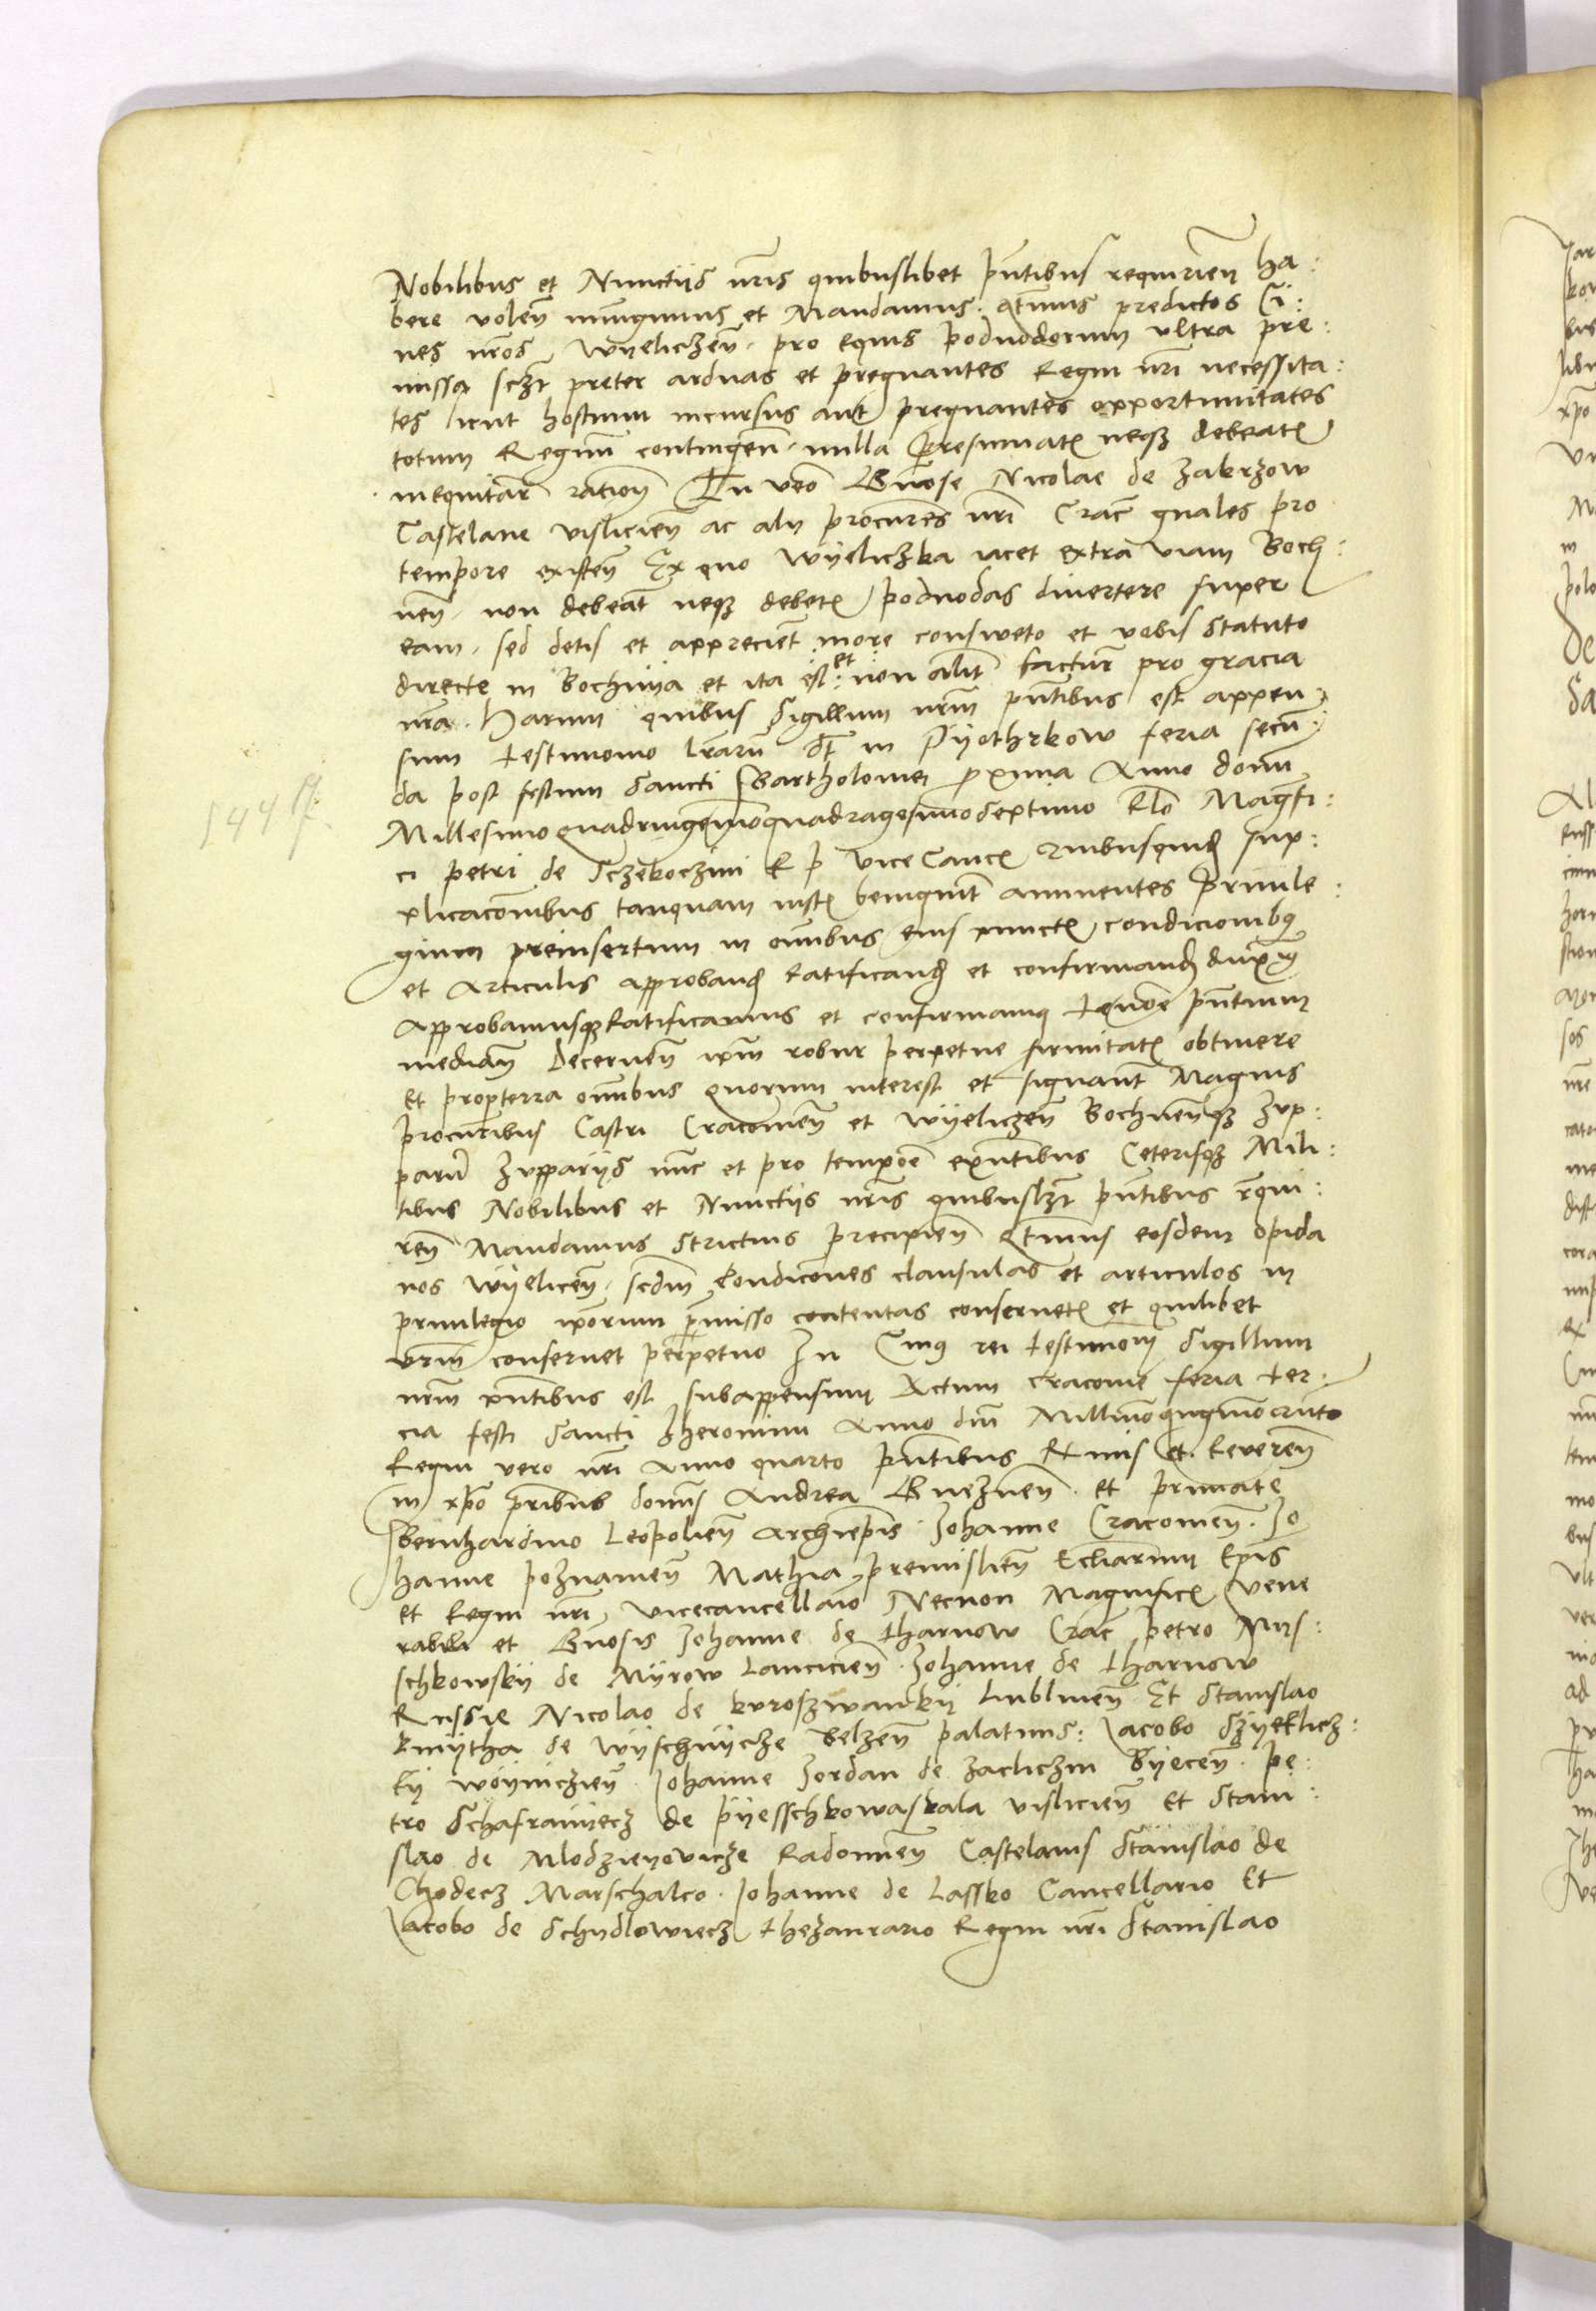 Nobilibus et Nunctijs nr̃is quibuslibet pñtibus requiren̄ ha:
bere volen̄ iniungimus et Mandamus. qtenus predictos Ci:
nes nr̃os Wyeliczen̄. pro equis podwodorum vltra pre:
missa scz̃t preter arduas et pregnantes Regni nr̃i necessita:
tes sicut hostium incursus aut pregnantes opportunitates
totum Regnũ contingen̄. nulla presumatꝭ neqꝫ debeatꝭ
inequitar̃ ration̄ Tu vẽo Gñose Nicolae de Zakrzow
Castelane vislicien̄ ac alij procurẽs nr̃i Crac̃ gñales pro
tempore existen̄ Ex quo Wyeliczka iacet extra viam Boch:
nen̄. non debeat̃ neqꝫ debetꝭ podwodas diuertere super
eam. sed detis et appreciet̃ more consweto et vobis statuto
directe in Bochnija et ita est: et non alit̃ factur̃ pro gracia
nr̃a. Harum quibus Sigillum nr̃m pñtibus est appen
sum testimonio lr̃arũ dt̃ in Pyothrkow feria secũ:
da post festum Sancti Bartholomei proxima Anno domini
1447
Millesimo quadringentesimo quadragesimo septimo Rlõ Magfi:
ci petri de Sczekoczini R p vice Cancꝭ Quibusquidꝭ sup:
plicacõnibus tanquam iustꝭ benignit̃ annuentes Priuile:
gium preinsertum in oĩnibus eius punctꝭ condicionibꝰ
et articulis approbandꝭ ratificandꝭ et confirmandꝭ duximꝰ
approbamusqꝫ Ratificamus et confirmamꝰ tenore pñtium
median̄ Decernen̄ ip̃m robur perpetue firmitatꝭ obtinere
Et propterra oĩnibus quorum interest et signant̃ Magnis
procur̃ibus Castri Cracouien̄ et Wyeliczen̄ Bochnen̄qꝫ Zup:
parũ Zupparijs nũc et pro tempoẽ exñtibus Ceterisqꝫ Mili:
tibus Nobilibus et Nunctijs nr̃is quibuslz̃t pñtibus r̃qui:
ren̄ Mandamus strictius precipien̄ qtenus eosdem opida
nos Wyelicen̄. scdm̃ Condicõnes clausulas et articulos in
priuilegio ip̃orum p̃misso contentas conseruetꝭ et quilibet
vr̃m conseruet perpetuo In Cuiꝰ rei testimoniũ Sigillum
nr̃m pñtibus est subappensum Actum Cracouie feria ter:
cia festi Sancti Jheronimi Anno dm̃ Millĩmo quĩgñmo quĩto
Regni vero nr̃i Anno quarto pñtibus Rmis et Reueren̄
in xp̃o p̃ribus domĩs Andrea Gnezñen̄. et primate
Bernhardino Leopolien̄ Archiep̃is. Johanne Cracouien̄. Jo
hanne poznanien̄ Mathia premislien̄ Ecl̃iarum Ep̃is
et Regni nr̃i vicecancellaĩo Necnon Magnificꝭ Vene
rabili et Gñosis Johanne de tharnow Crac̃ petro Mys:
schkowsky de Myrow Lancicien̄. Johanne de tharnow
Russie Nicolao de kuroszwanky lublinen̄ Et Stanislao
kmytha de Wyschnycze Belzen̄ palatinis: Jacobo Szyeklicz:
ky woyniczien̄. Johanne Jordan de Zacliczin Byecen̄. pe:
tro Schafrainyecz de pyesschkowaskala vislicien̄ et Stani:
slao de Mlodzieyovicze Radomien̄ Castelanis Stanislao de
Chodecz Marschalco. Johanne de Lassko Cancellario Et
Jacobo de Schydlowiecz thezaurario Regni nr̃i Stanislao